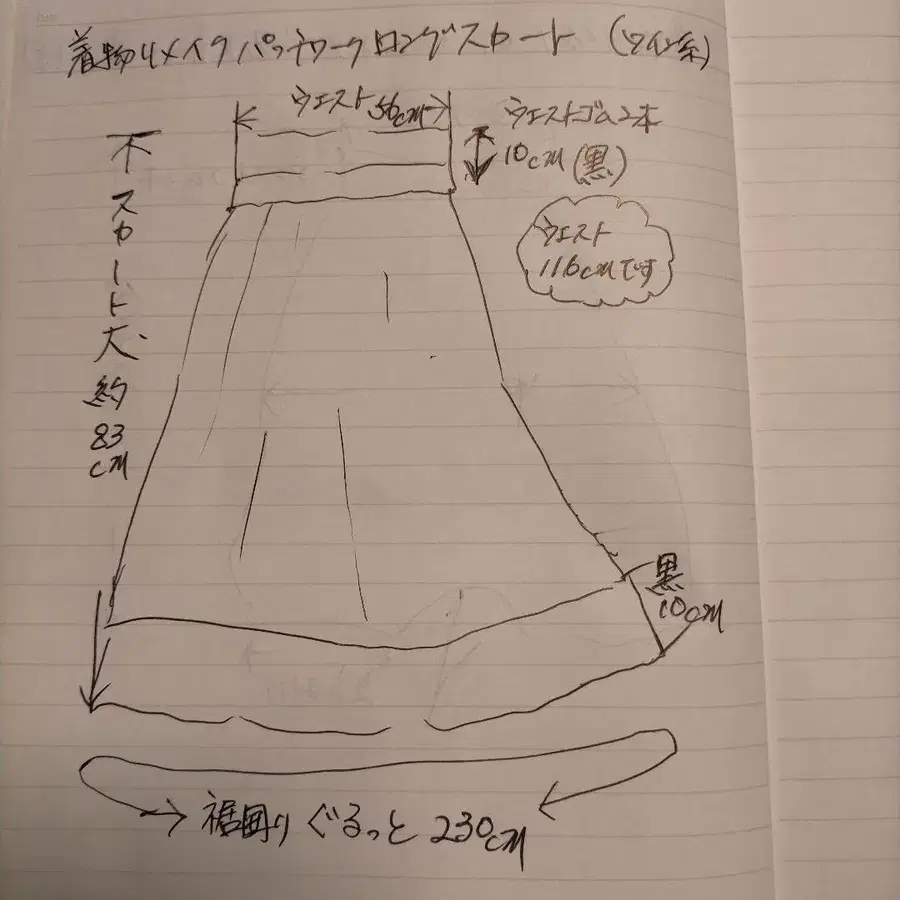 着物リメイクパッチワークロングスカート (ワイン系)
ウエスト56cm
ウエストゴム2本
10cm(黒)
ウエスト
116cmです
スカート丈
約
83
cm
黒
10cm
裾囲りぐるっと230cm